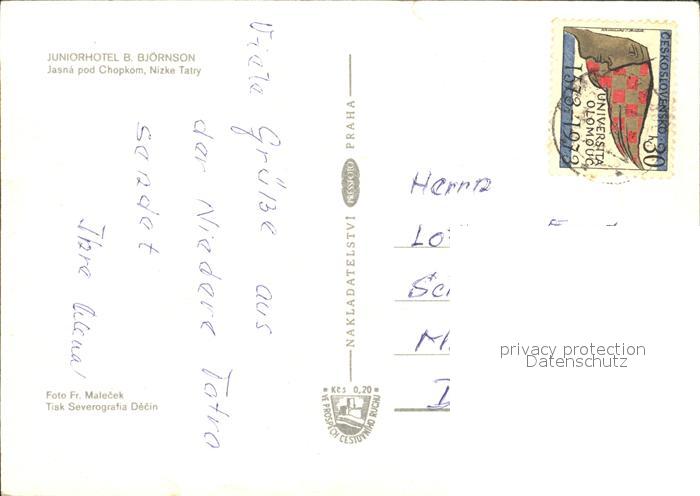 JUNIORHOTEL B. BJÖRNSON
Jasná pod Chopkom, Nízke Tatry
Viele Grüße aus
der Niedere Tatra
sendet
Ihre
Foto Fr. Maleček
Tisk Severografia Děčín
NAKLADATELSTVÍ PRESSFOTO PRAHA
Kčs 0,20
VE PROSPĚCH CESTOVNÍHO RUCHU
ČESKOSLOVENSKO 30 h
UNIVERSITA
OLOMOUC
1573-1973
Herrn
privacy protection
Datenschutz